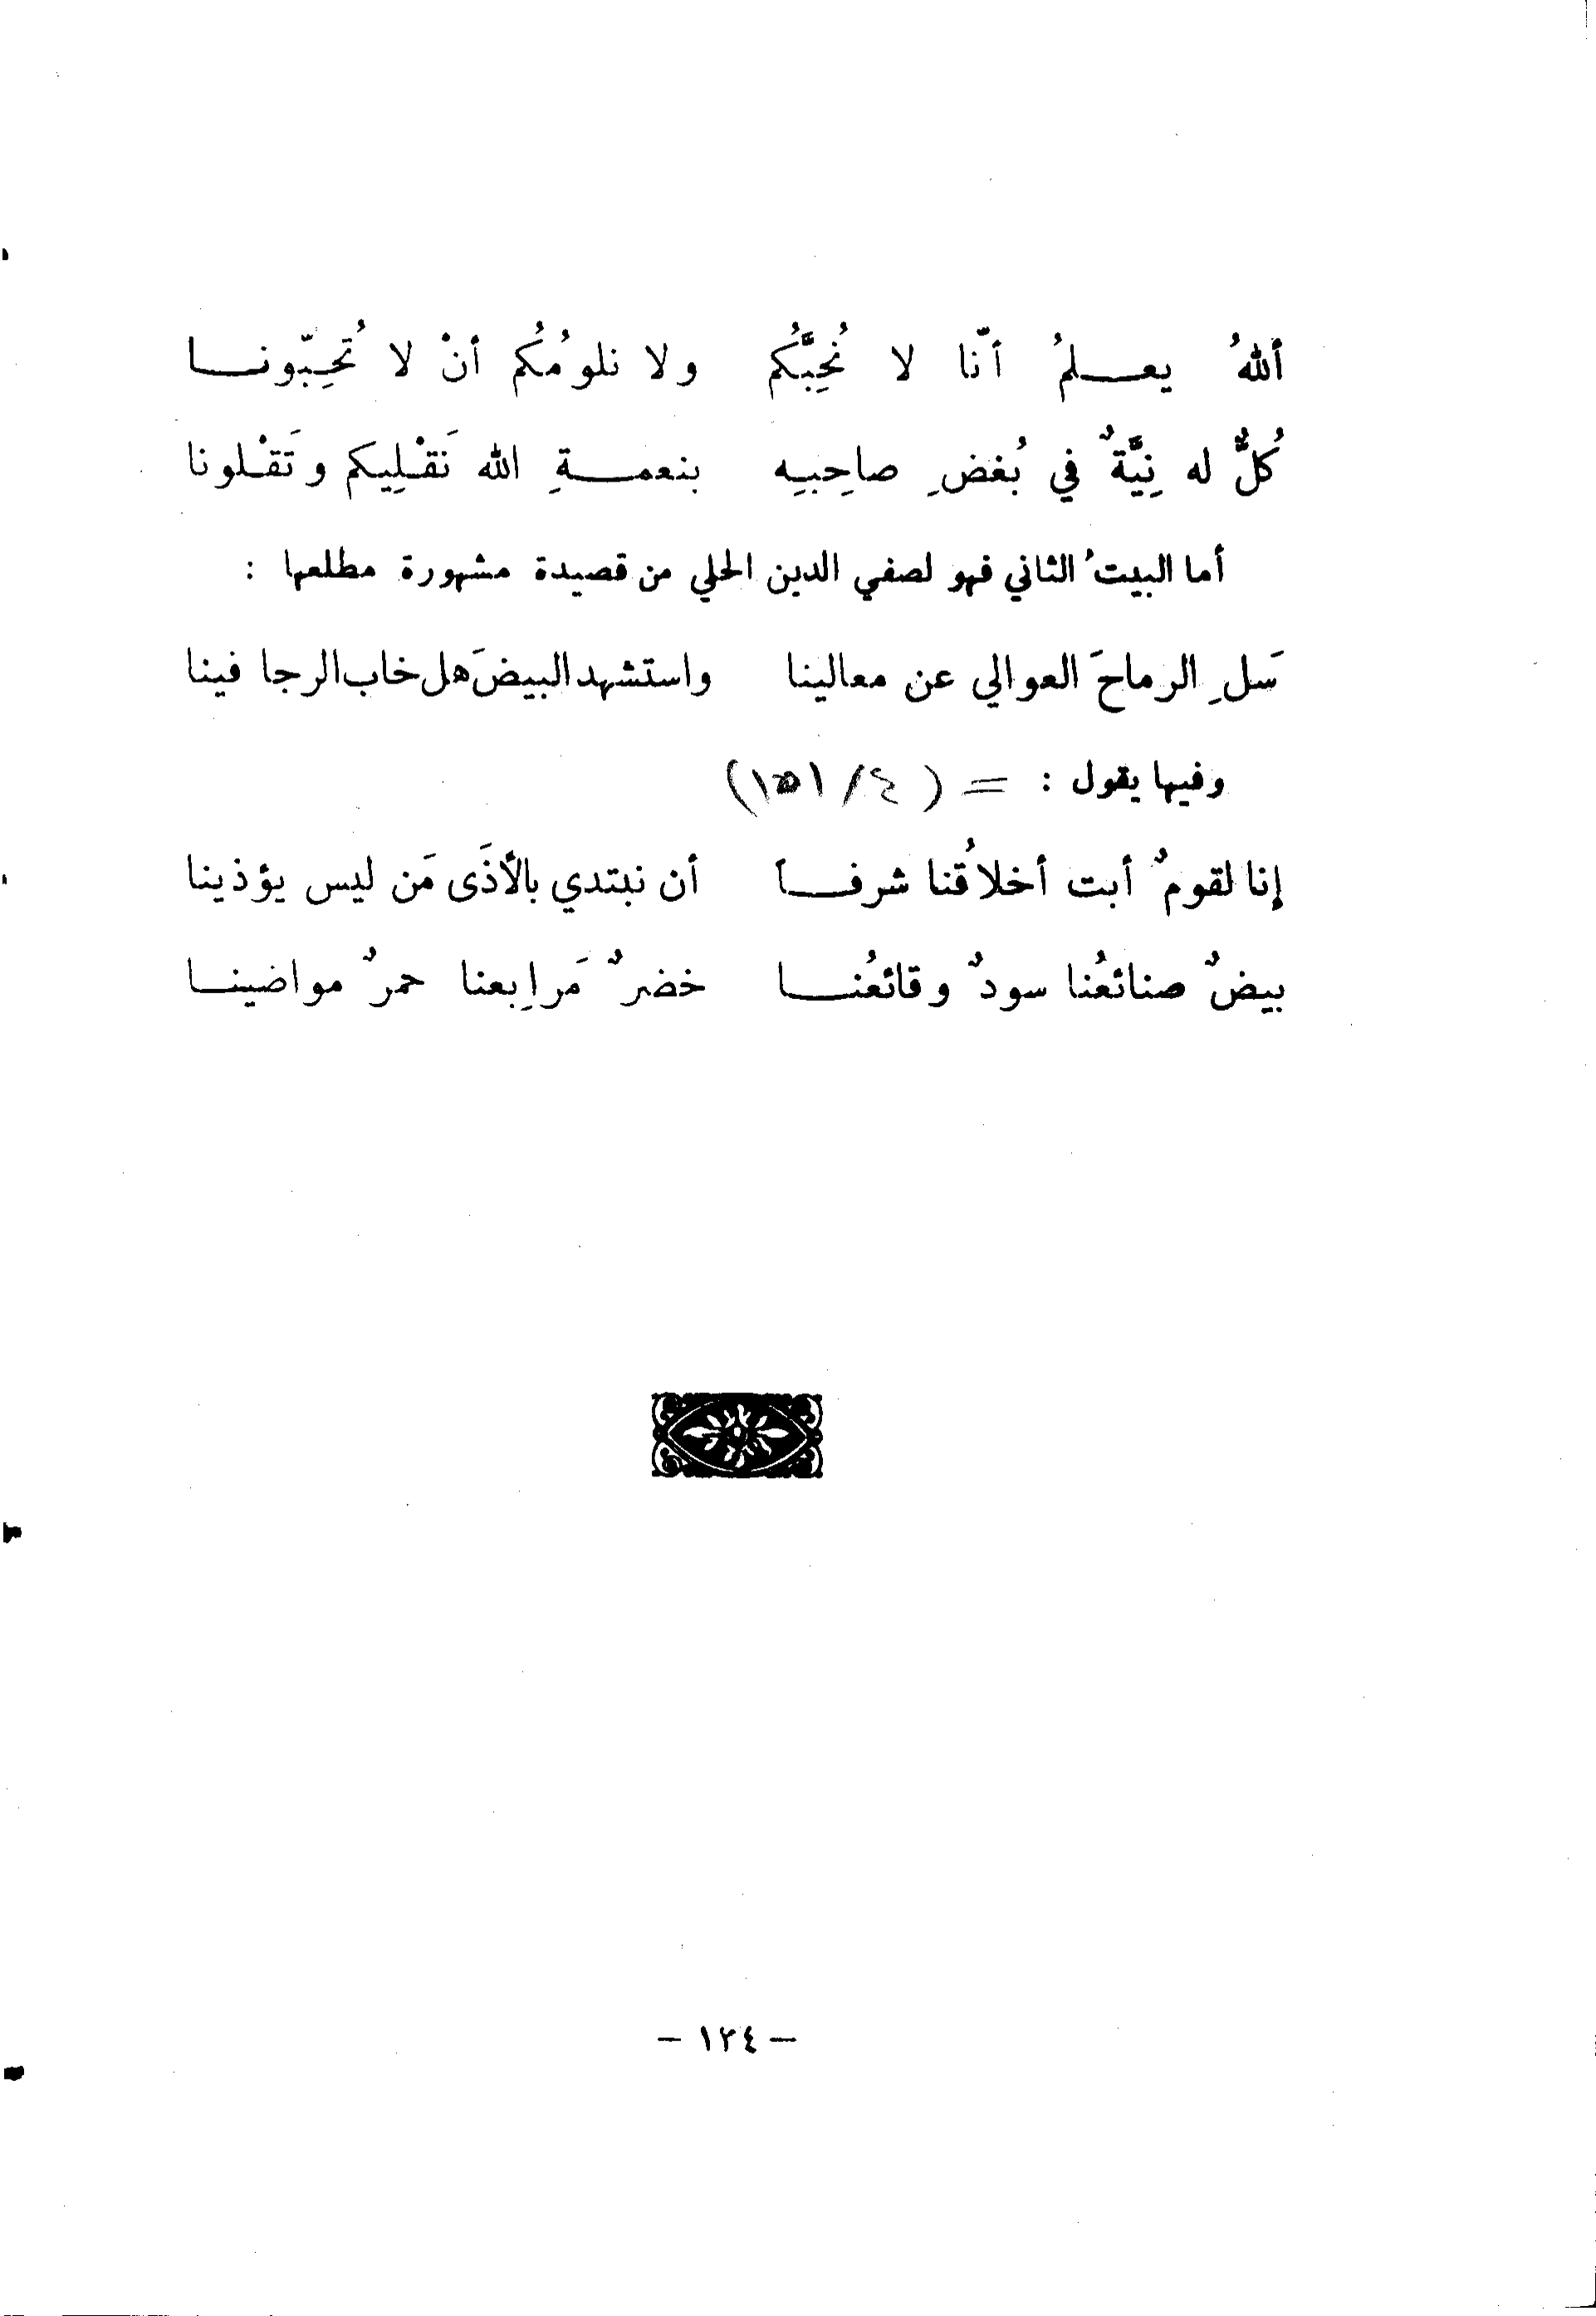 أللهُ يعــلمُ أنّا لا نُحِبُّكُم ولا نلومُكُم أنْ لا تُحِبّونــا
كُلٌّ له نِيَّةٌ في بُغضِ صاحِبِه بنعمــةِ الله نَقْلِيكم وتَقْلونا
أما البيتُ الثاني فهو لصفي الدين الحلي من قصيدة مشهورة مطلعها :
سَلِ الرماحَ العوالي عن معالينا واستشهد البيضَ هل خاب الرجا فينا
وفيها يقول : = ( ٤ / ١٥١)
إنا لقومٌ أبت أخلاقُنا شرفــاً أن نبتدي بالأذَى مَن ليس يؤذينا
بيضٌ صنائعُنا سودٌ وقائعُنــا خضرٌ مَرابِعنا حمرٌ مواضينــا
– ١٢٤ –